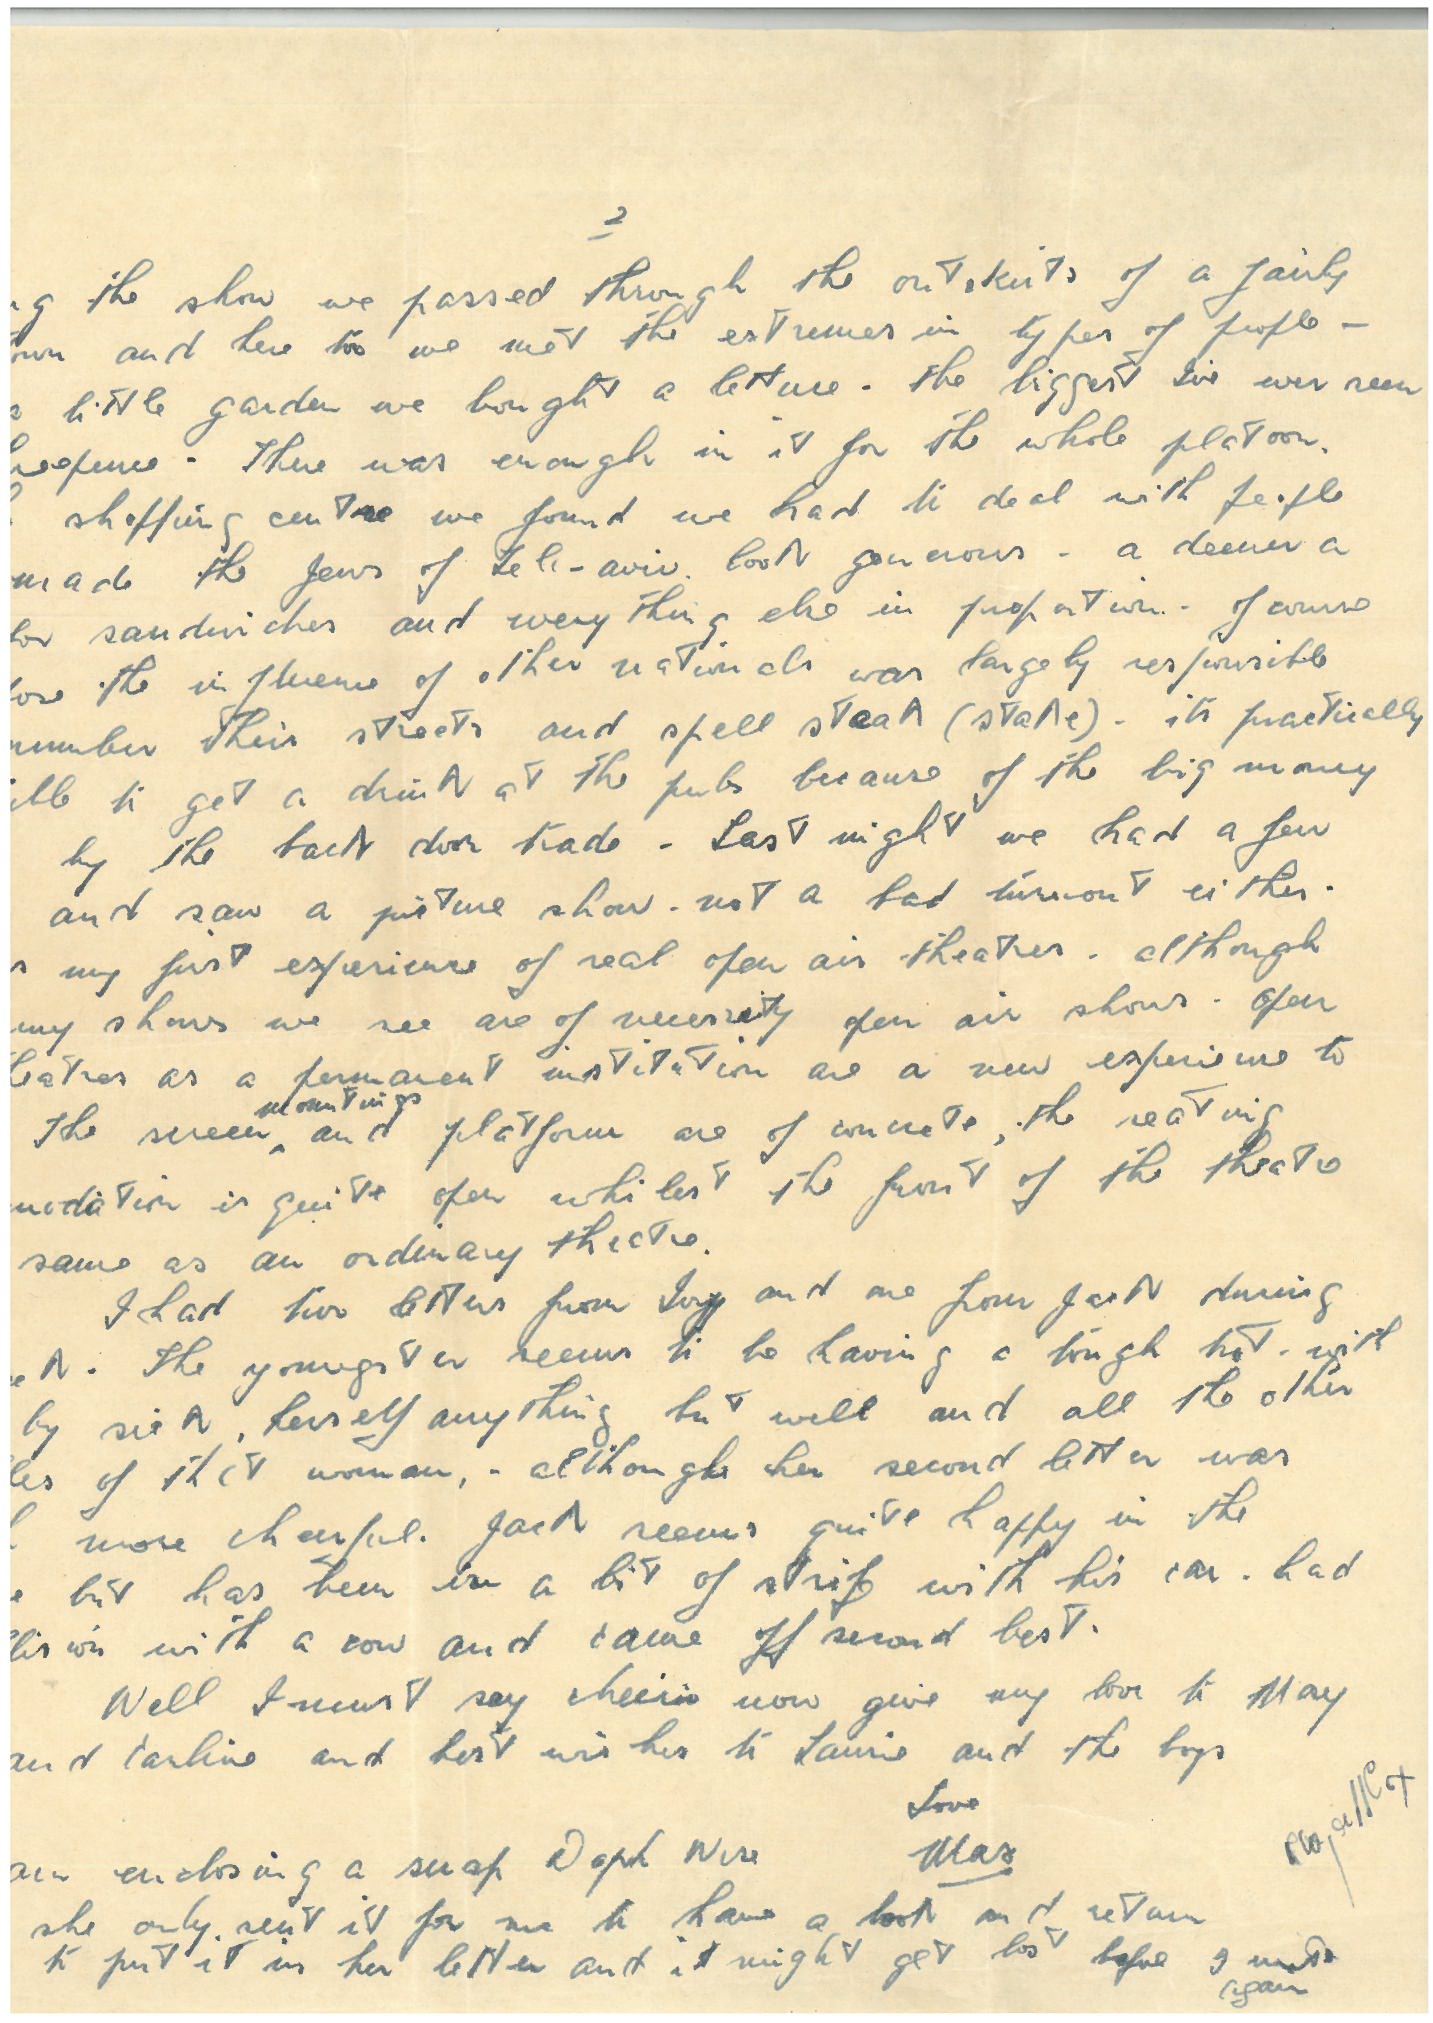 2
ng the show we passed through the outskirts of a fairly
own and here too we met the extremes in types of people -
little garden we bought a lettuce - the biggest Ive ever seen
hreepence - There was enough in it for the whole platoon.
shopping centre we found we had to deal with people
made the Jews of Tel-aviv. look generous - a deener a
for sandwiches and everything else in proportion - of course
ose the influence of other nationals was largely responsible
number their streets and spell steak (stake) - its practically
ible to get a drink at the pubs because of the big money
by the back door trade - Last night we had a few
and saw a picture show - not a bad turnout either.
s my first experience of real open air theatres - although
my shows we see are of necessity open air shows - open
heatres as a permanent institution are a new experience to
The screen mountings and platform are of concrete, the seating
modation is quite open whilest the front of the theatre
same as an ordinary theatre.
I had two letters from Ivy and one from Jack during
ek. The youngster seems to be having a tough trot - with
by sick, herself anything but well and all the other
les of that woman, - although her second letter was
more cheerful. Jack seems quite happy in the
e but has been in a bit of strife with his car - had
lision with a cow and came off second best.
Well I must say cheerio now give my love to May
and Carline and best wishes to Laurie and the boys
Love
Max
am enclosing a snap Daph
she only sent it for me to have a look and return
to put it in her letter and it might get lost before I
again